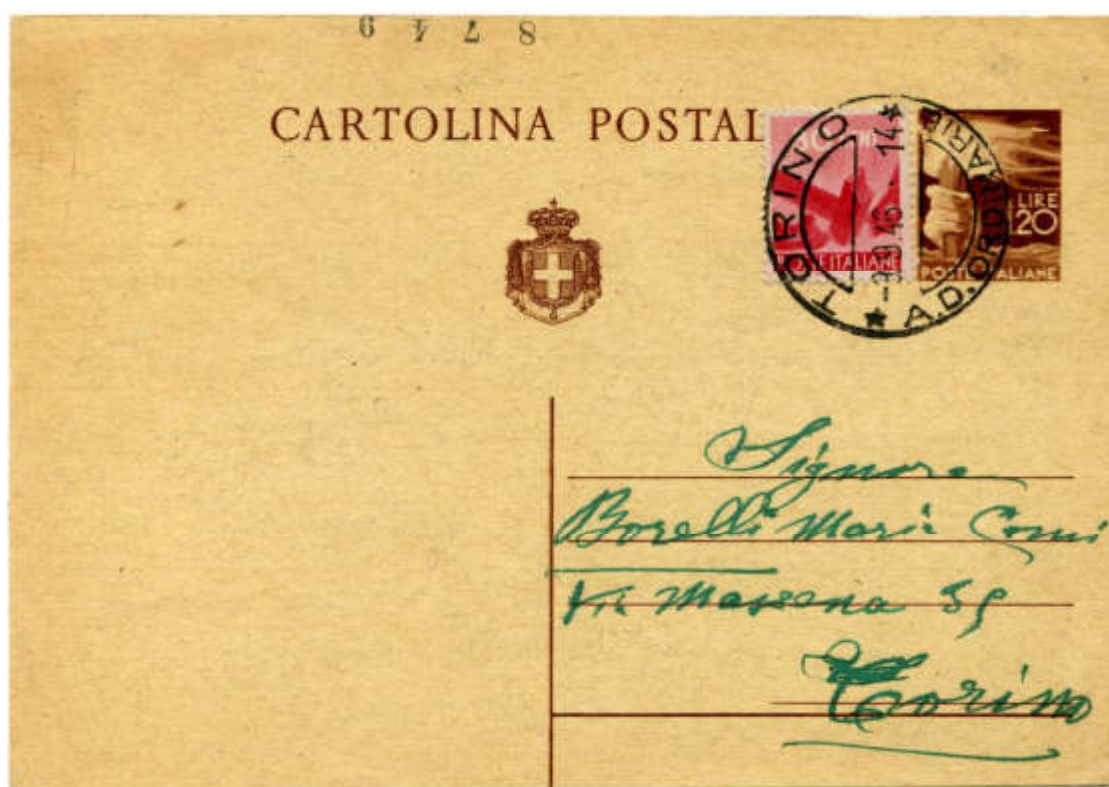 8749
CARTOLINA POSTAL
TORINO
A.D. ORDINARIE
14
POSTE ITALIANE
LIRE
1,20
POSTE ITALIANE
Signora
Borelli Maria
Via Massena
Torino